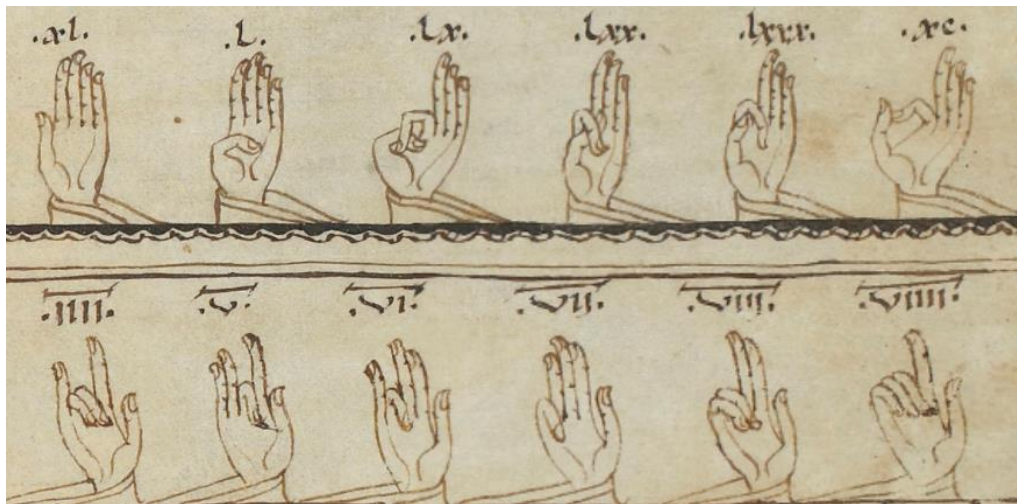 .xl. .L. .Lx. .Lxx. .lxxx. .xc.
.IIII. .V. .VI. .VII. .VIII. .VIIII.